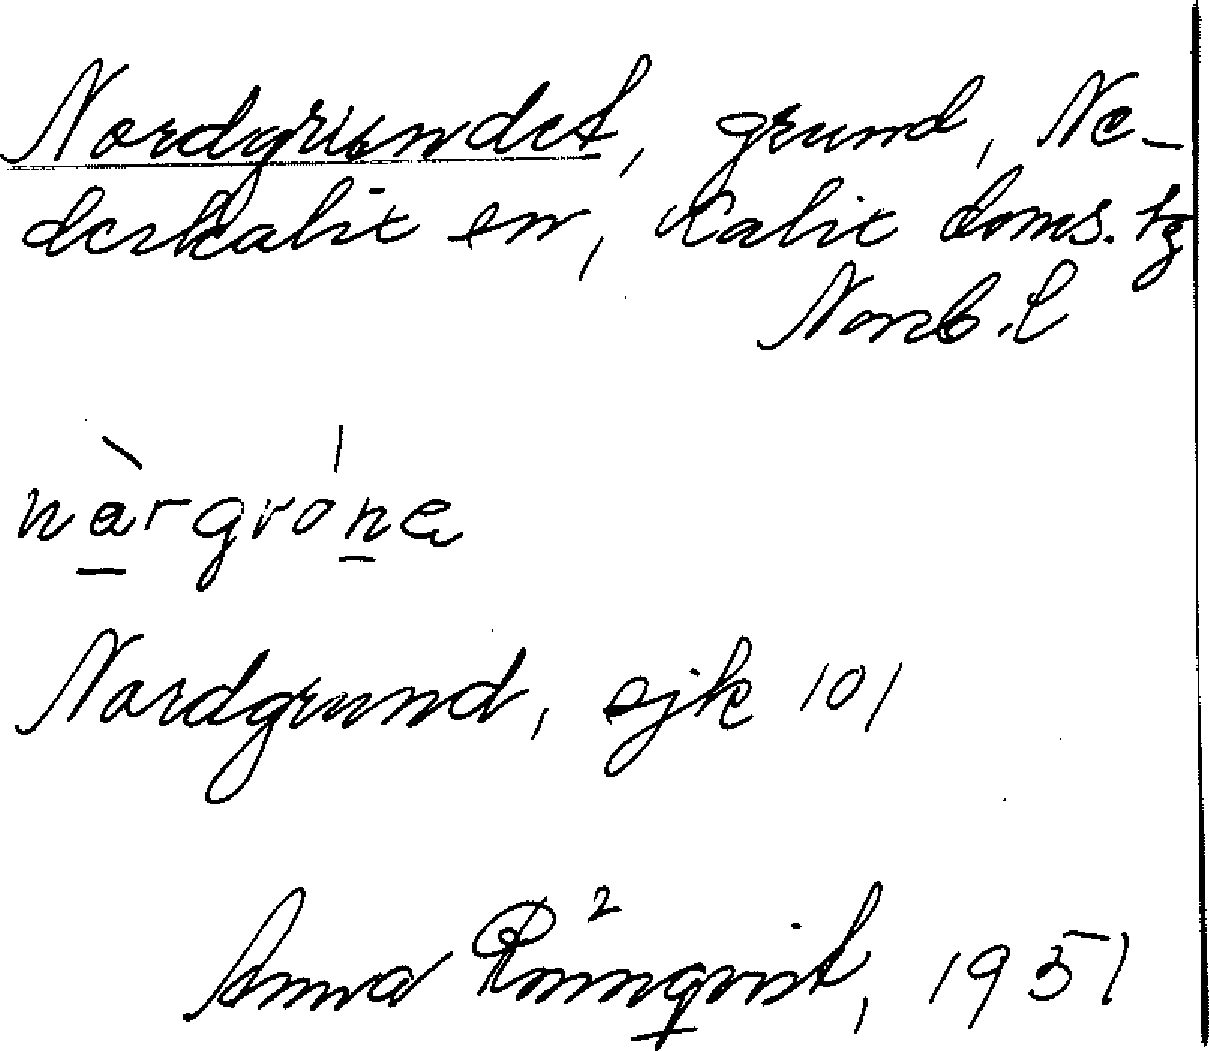 Nordgrundet, grund, Ne-
derkalix sn, Kalix doms. tg
Norrb. l
nàrgróna
Nordgrund, sjk 101
Anna Rönnqvist, 1951